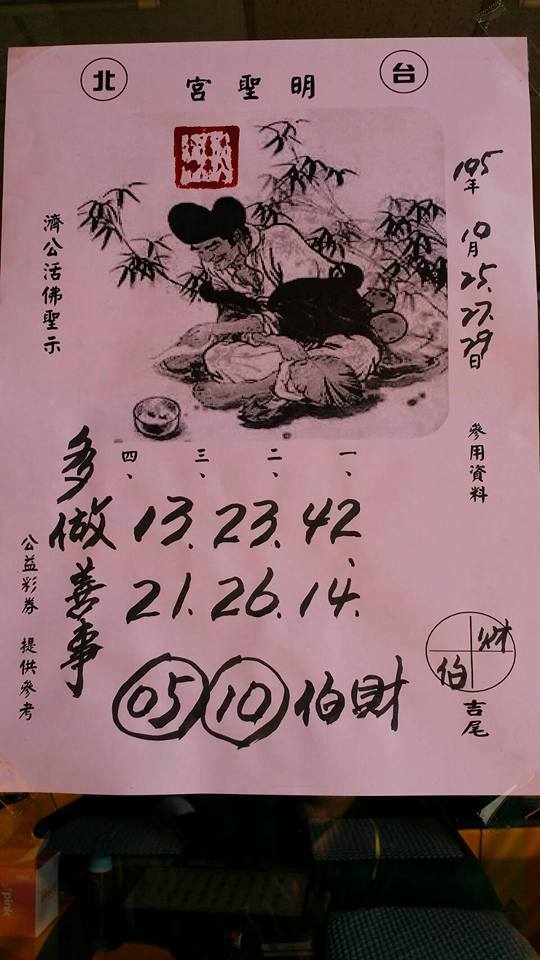 台北
明聖宮
105年10月25.27.29日
參用資料
濟公活佛聖示
一、二、三、四、
13.23.42、
21.26.14.
05 10 伯財
多做善事
公益彩券 提供參考
財
伯
吉尾
pink